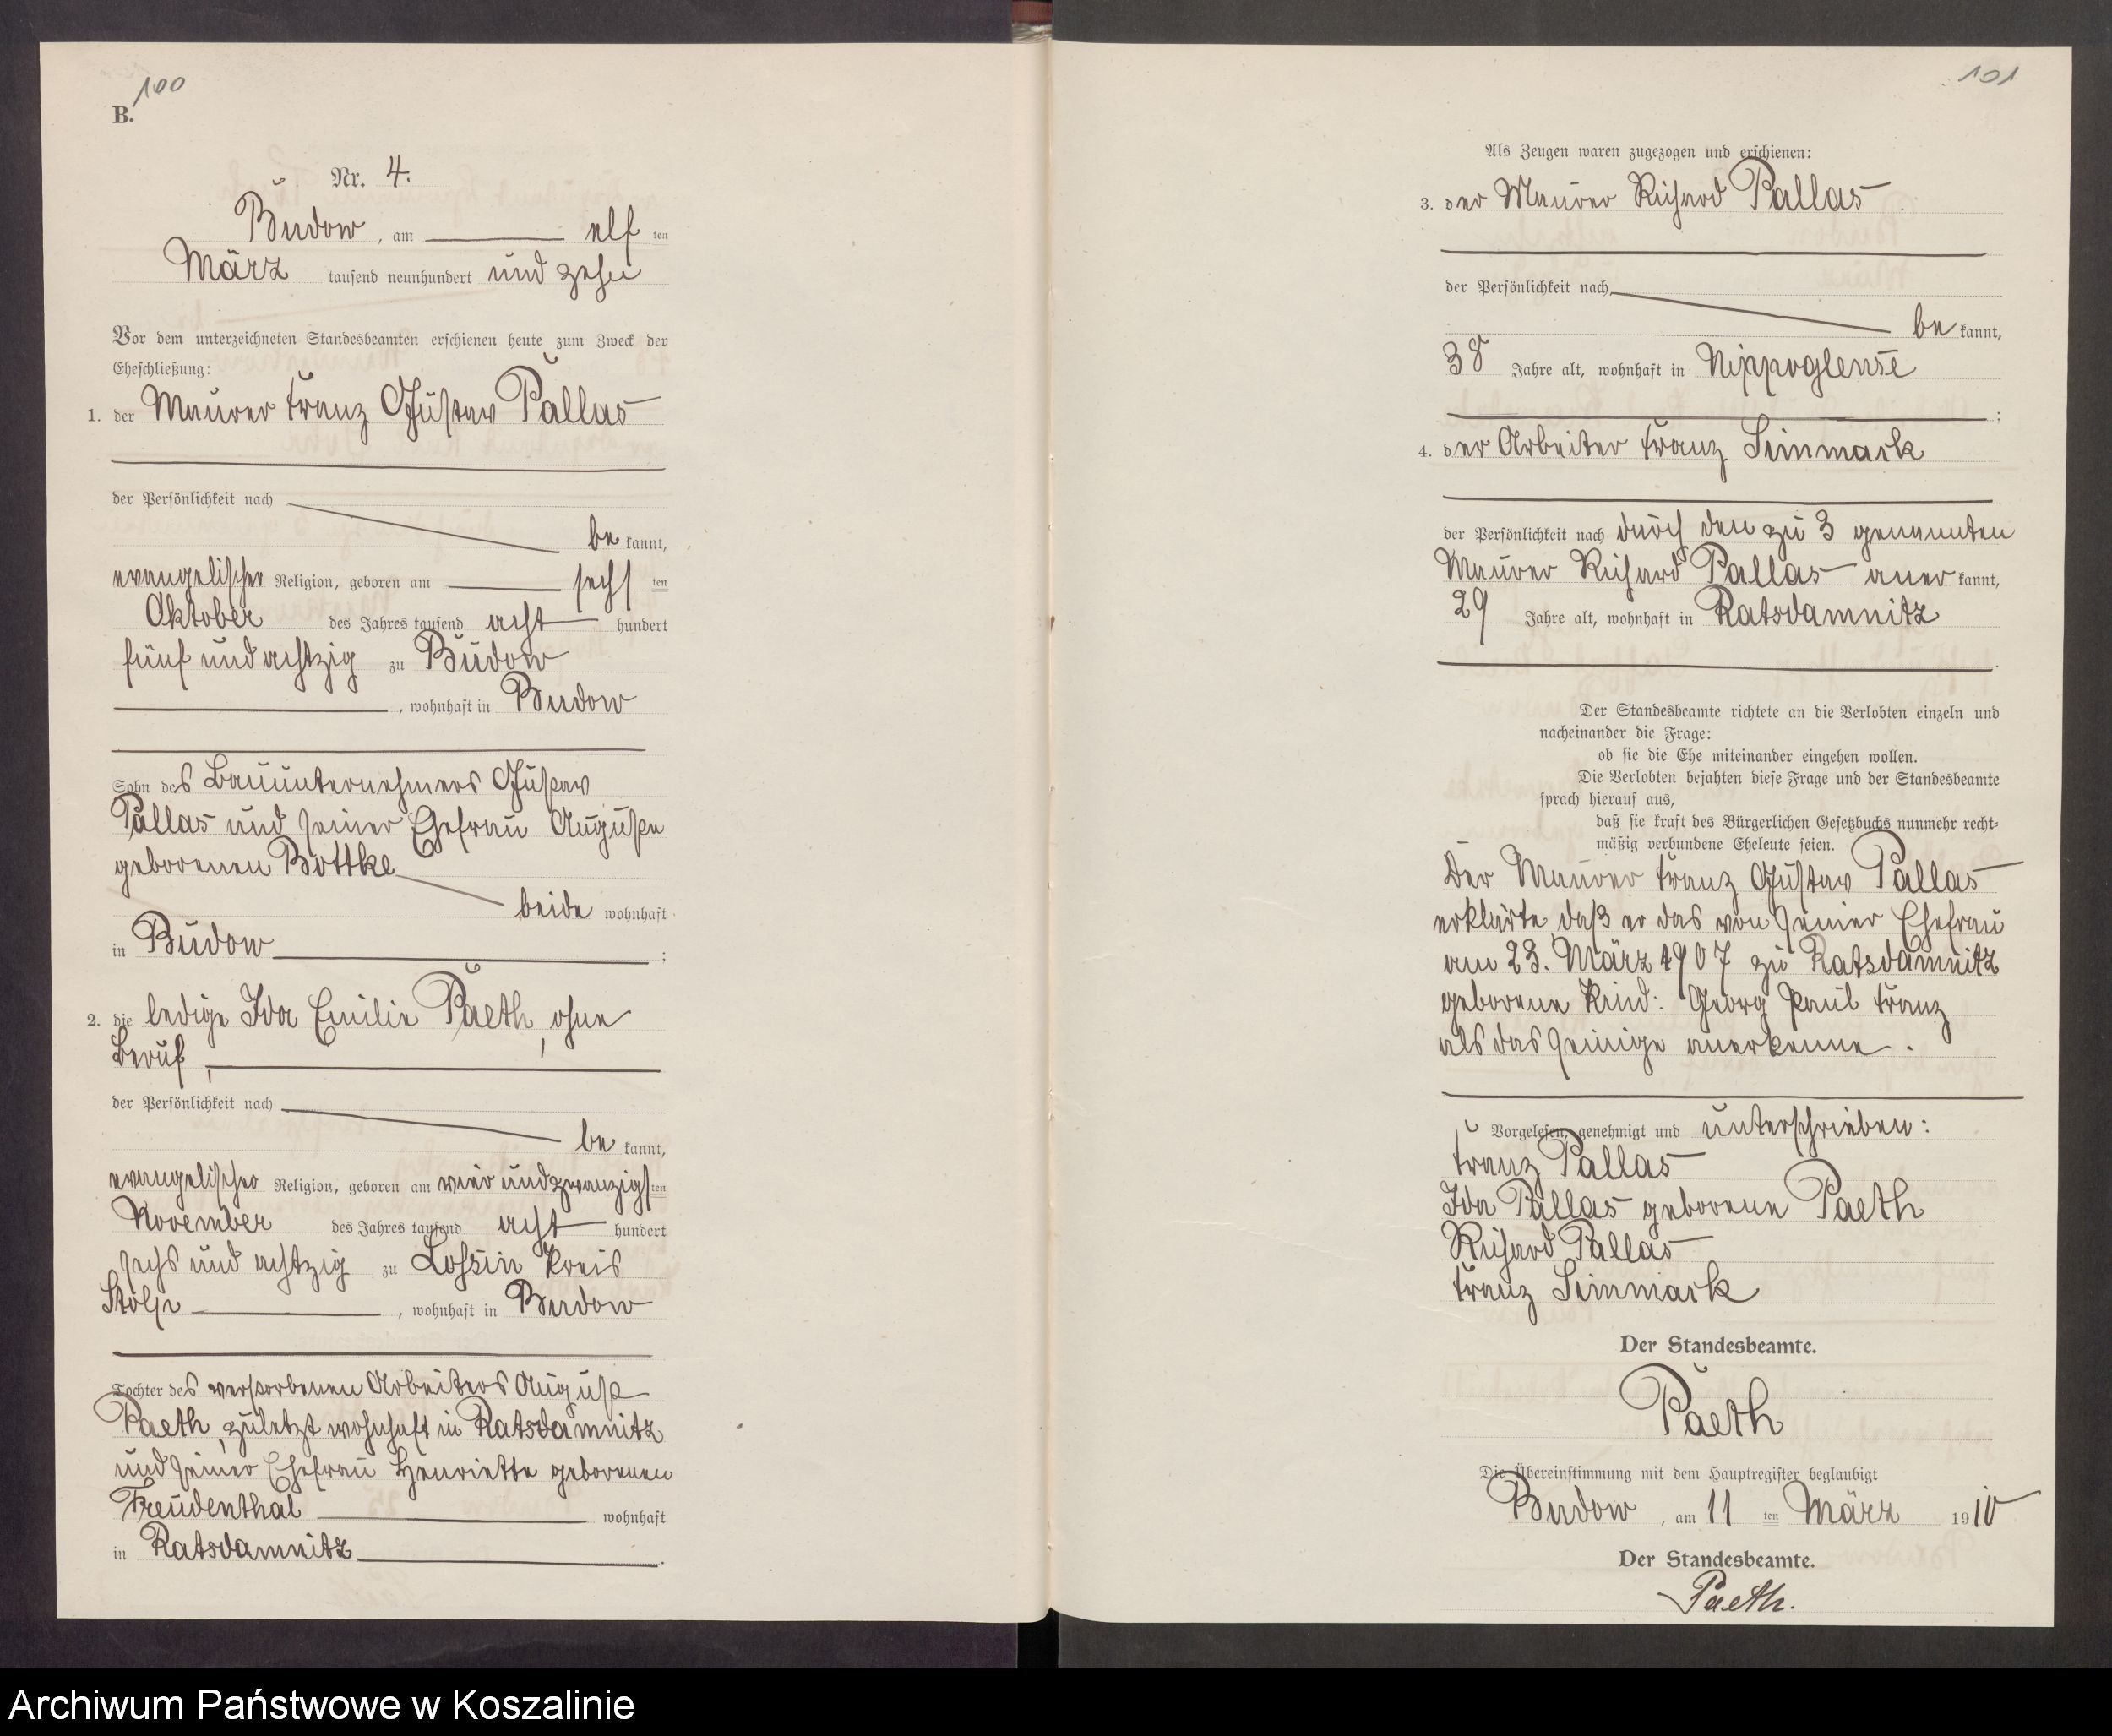 100
B.
Nr. 4.
Budow, am elf ten
März tausend neunhundert und zehn
Vor dem unterzeichneten Standesbeamten erschienen heute zum Zweck der
Eheschließung:
1. der Maurer Franz Gustav Pallas
der Persönlichkeit nach
be kannt,
evangelischer Religion, geboren am sechs ten
Oktober des Jahres tausend acht hundert
fünf und achtzig zu Budow
, wohnhaft in Budow
Sohn des Bauunternehmers Gustav
Pallas und seiner Ehefrau Auguste
geborenen Bottke
beide wohnhaft
in Budow ;
2. die ledige Ida Emilie Paeth, ohne
Beruf,
der Persönlichkeit nach
be kannt,
evangelischer Religion, geboren am vier und zwanzigs ten
November des Jahres tausend acht hundert
sechs und achtzig zu Lossin Kreis
Stolp , wohnhaft in Budow
Tochter des verstorbenen Arbeiters August
Paeth, zuletzt wohnhaft in Ratsdamnitz
und seiner Ehefrau Henriette geborenen
Freudenthal wohnhaft
in Ratsdamnitz .
101
Als Zeugen waren zugezogen und erschienen:
3. der Maurer Richard Pallas
der Persönlichkeit nach
be kannt,
38 Jahre alt, wohnhaft in Nippoglense
;
4. der Arbeiter Franz Simmark
der Persönlichkeit nach durch den zu 3 genannten
Maurer Richard Pallas aner kannt,
29 Jahre alt, wohnhaft in Ratsdamnitz
.
Der Standesbeamte richtete an die Verlobten einzeln und
nacheinander die Frage:
ob sie die Ehe miteinander eingehen wollen.
Die Verlobten bejahten diese Frage und der Standesbeamte
sprach hierauf aus,
daß sie kraft des Bürgerlichen Gesetzbuchs nunmehr recht-
mäßig verbundene Eheleute seien.
Der Maurer Franz Gustav Pallas
erklärte daß er das von seiner Ehefrau
am 23. März 1907 zu Ratsdamnitz
geborene Kind: Georg Paul Franz
als das seinige anerkenne.
Vorgelesen, genehmigt und unterschrieben:
Franz Pallas
Ida Pallas geborene Paeth
Richard Pallas
Franz Simmark
Der Standesbeamte.
Paeth
Die Übereinstimmung mit dem Hauptregister beglaubigt
Budow, am 11 ten März 1910
Der Standesbeamte.
Paeth.
Archiwum Państwowe w Koszalinie